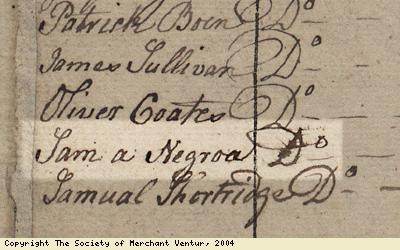 Patrick Boen Do
James Sullivan Do
Oliver Coates Do
Sam a Negroa Do
Samual Shortridge Do
Copyright The Society of Merchant Ventur, 2004